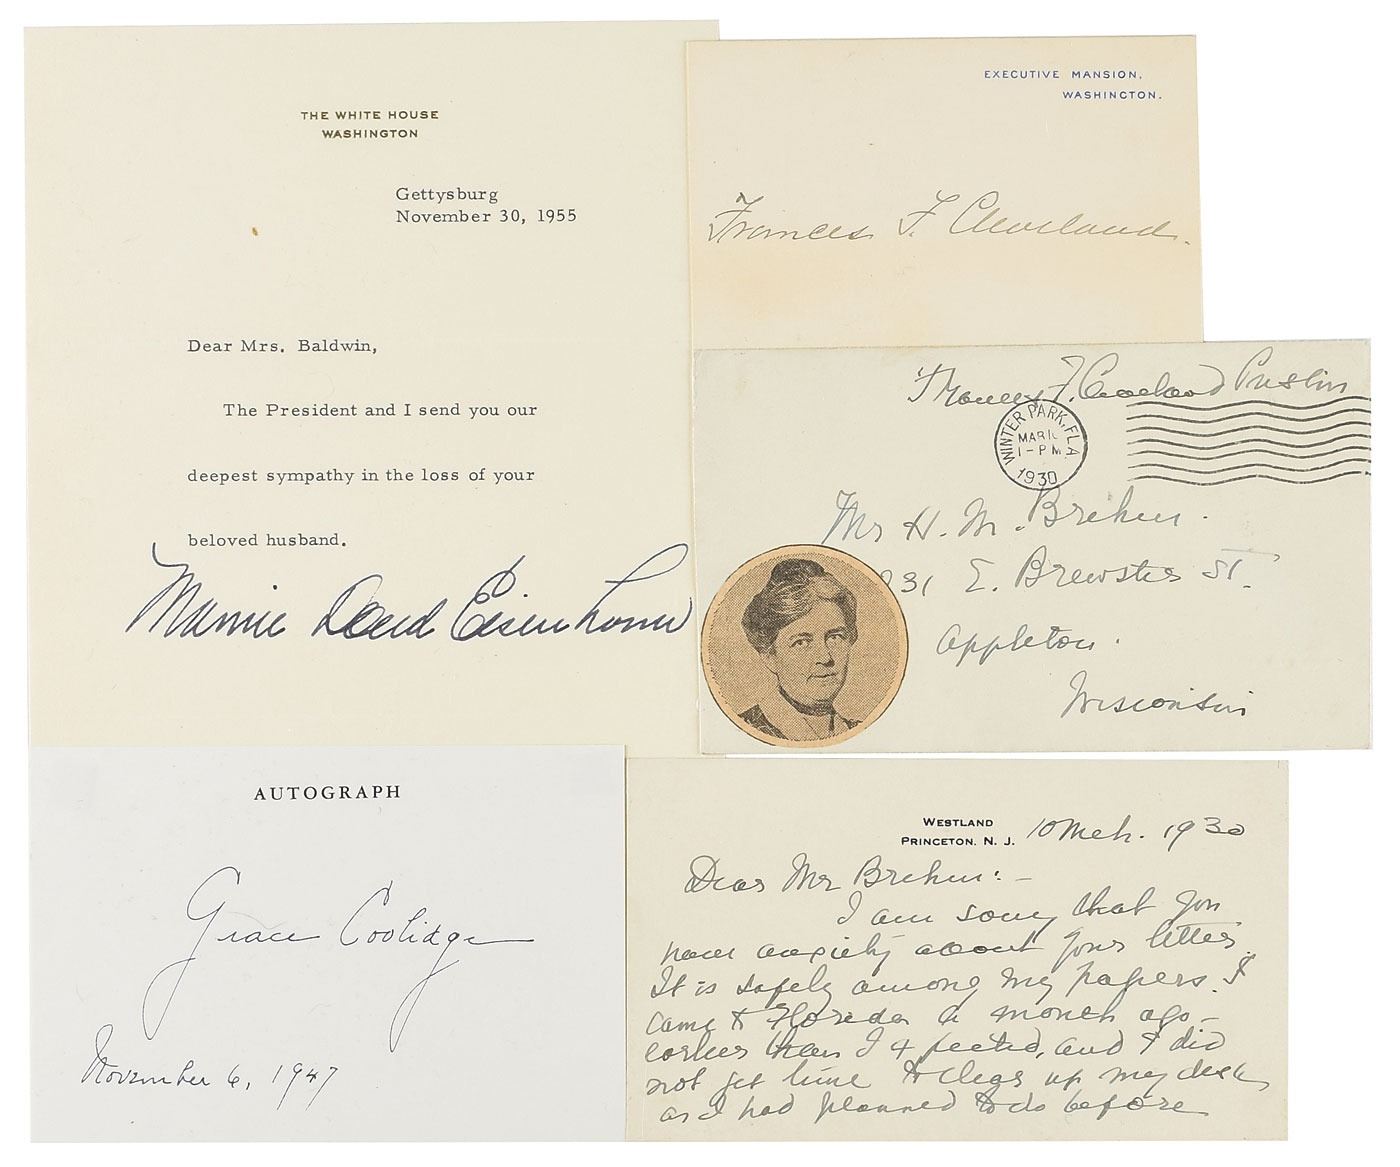 THE WHITE HOUSE
WASHINGTON
Gettysburg
November 30, 1955
Dear Mrs. Baldwin,
The President and I send you our
deepest sympathy in the loss of your
beloved husband.
Mamie Doud Eisenhower
EXECUTIVE MANSION,
WASHINGTON.
Frances F. Cleveland.
Frances F. Cleveland Preston
WINTER PARK, FLA
MAR
1-PM
1930
Mr H. M. Brehm.
31 E. Brewster St.
Appleton.
Wisconsin
AUTOGRAPH
Grace Coolidge
November 6, 1947
WESTLAND
PRINCETON. N. J.
10 Mch. 1930
Dear Mr Brehm:-
I am sorry that you
have anxiety about your letter.
It is safely among my papers. I
came to Florida a month ago -
earlier than I expected, and I did
not get time to clear up my desk
as I had planned to do before